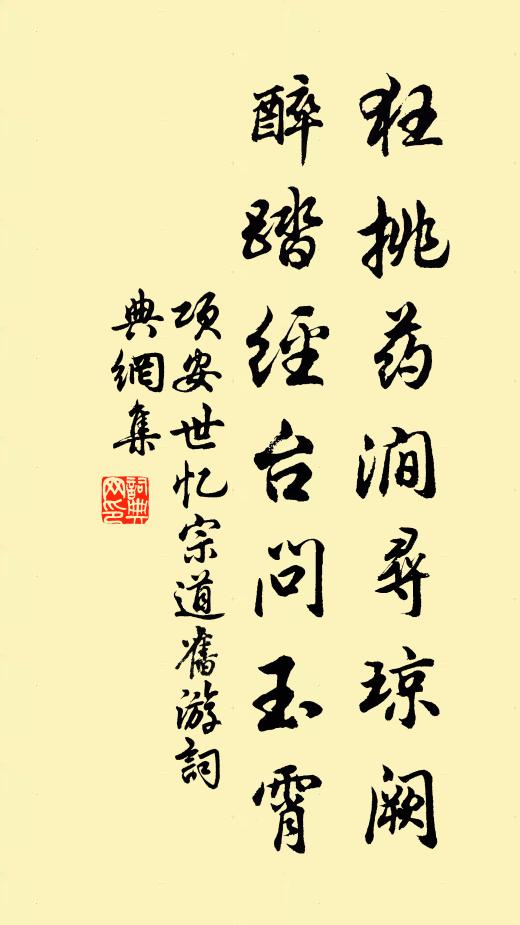 狂挑药涧寻琼阙
醉踏经台问玉霄
项安世忆宗道旧游词
典網集
詞典网印